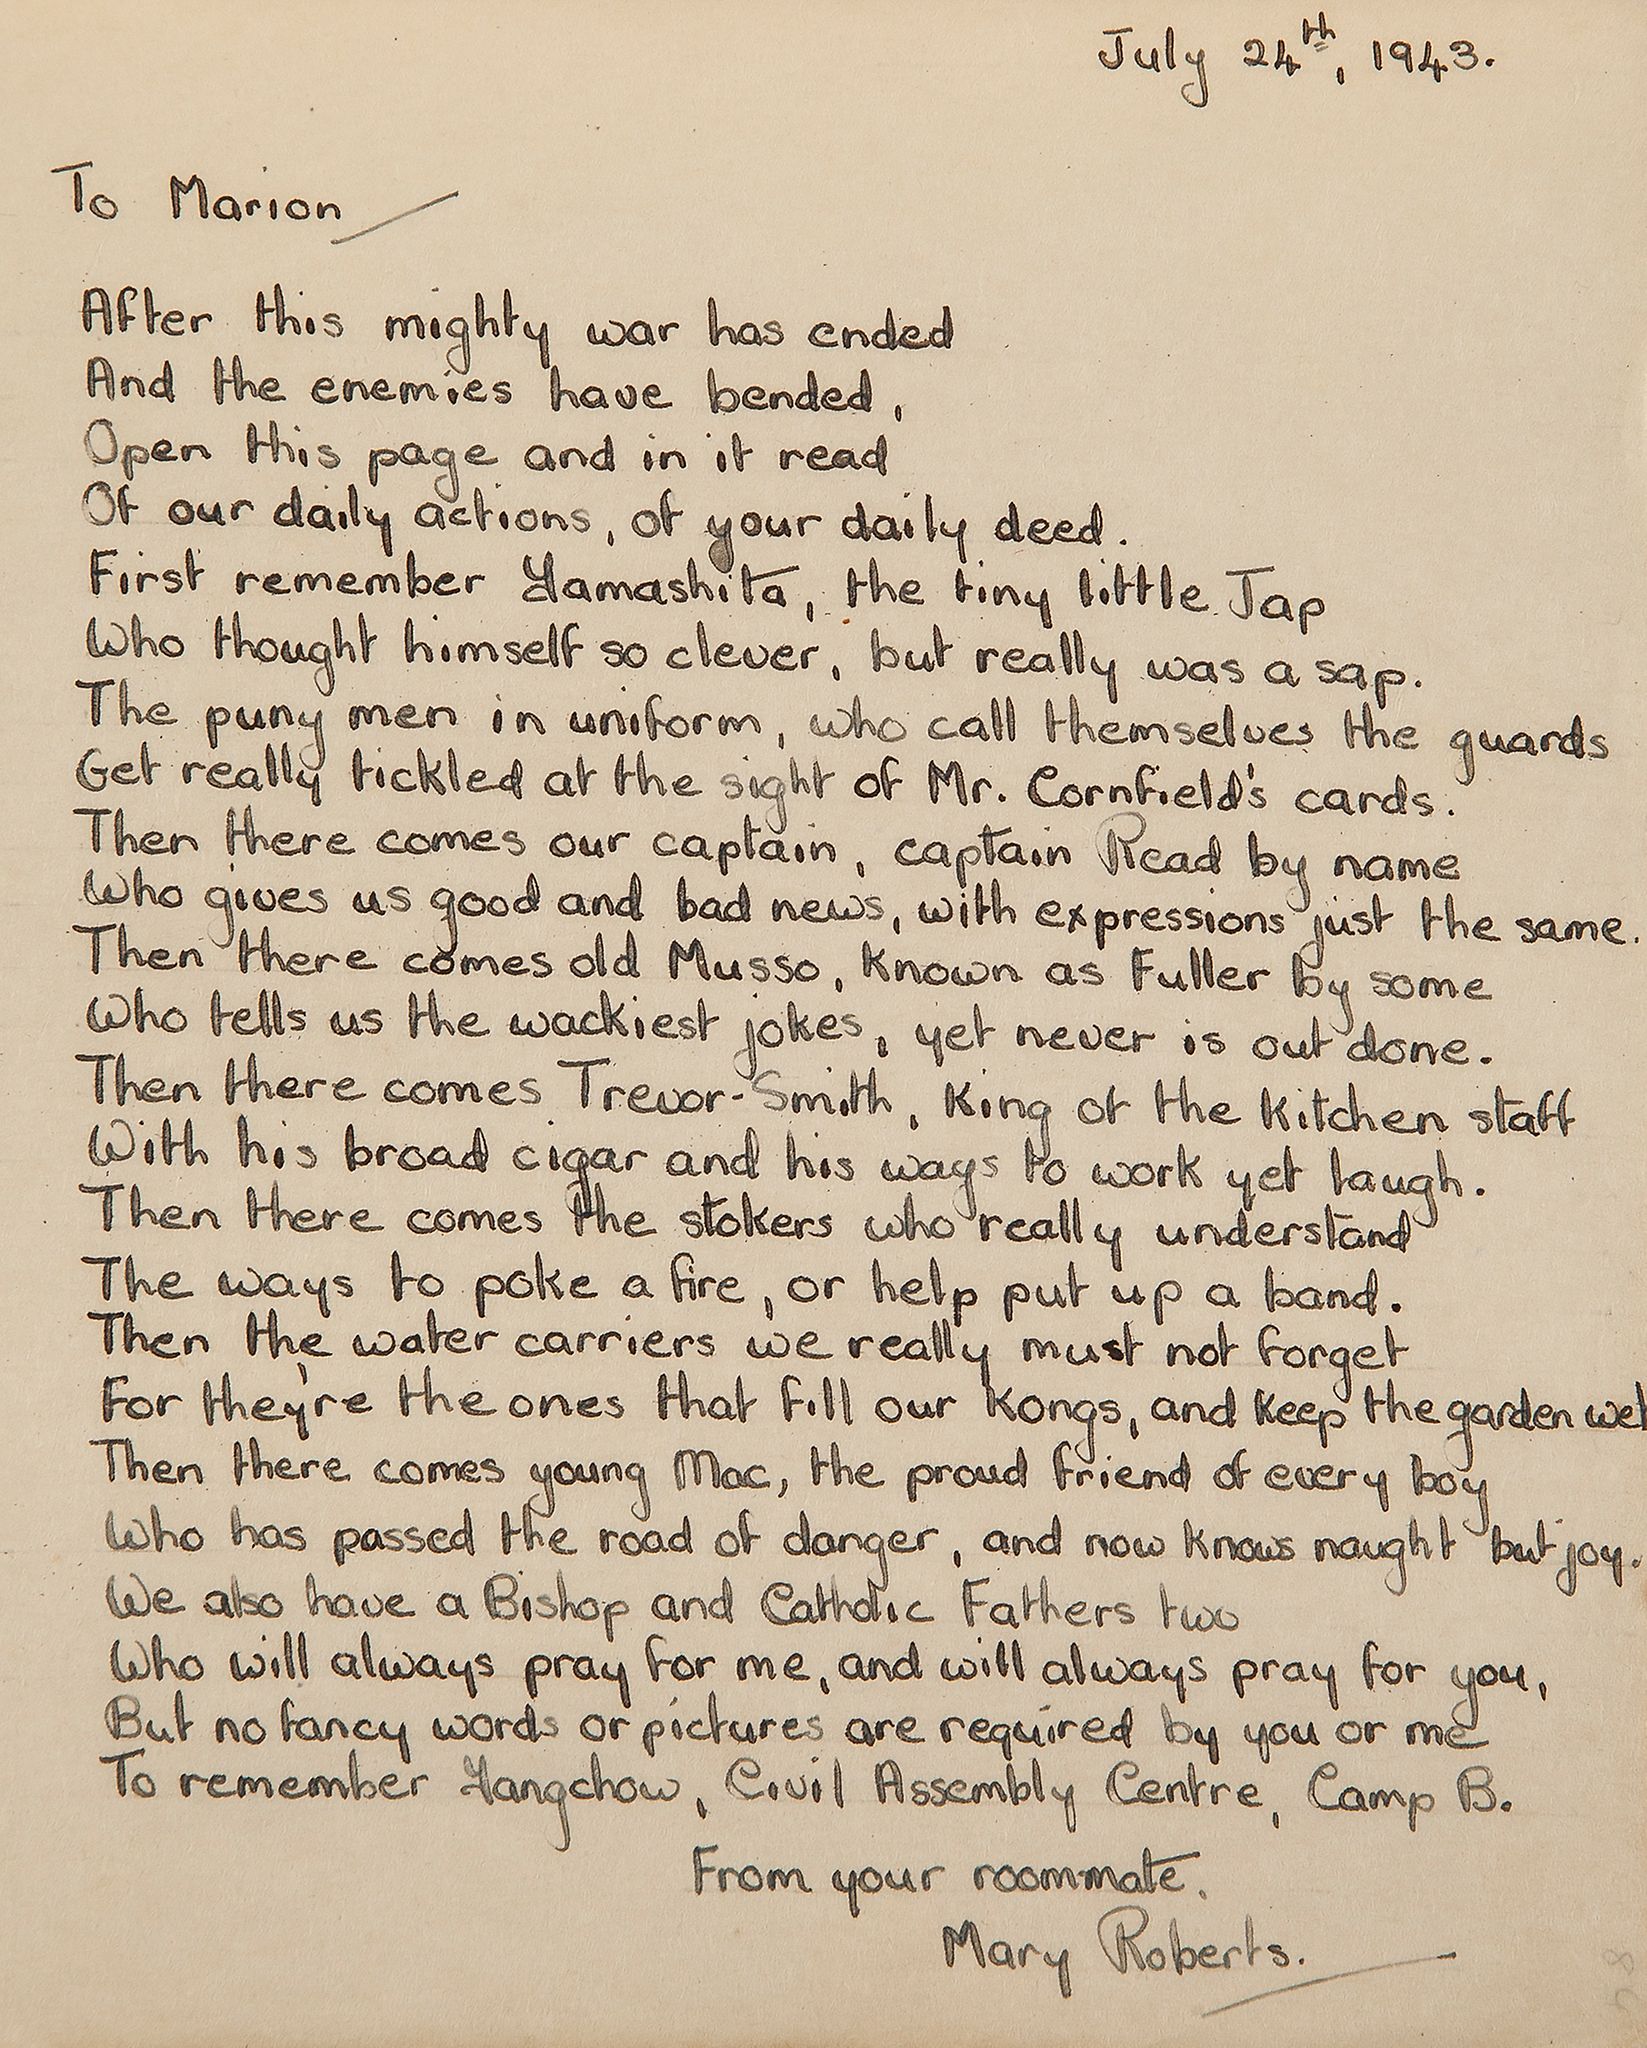 July 24th, 1943.
To Marion
After this mighty war has ended
And the enemies have bended,
Open this page and in it read
Of our daily actions, of your daily deed.
First remember Yamashita, the tiny little Jap
Who thought himself so clever, but really was a sap.
The puny men in uniform, who call themselves the guards
Get really tickled at the sight of Mr. Cornfield's cards.
Then there comes our captain, captain Read by name
Who gives us good and bad news, with expressions just the same.
Then there comes old Musso, known as Fuller by some
Who tells us the wackiest jokes, yet never is out done.
Then there comes Trevor-Smith, King of the Kitchen staff
With his broad cigar and his ways to work yet laugh.
Then there comes the stokers who really understand
The ways to poke a fire, or help put up a band.
Then the water carriers we really must not forget
For they're the ones that fill our Kongs, and keep the garden wet
Then there comes young Mac, the proud friend of every boy
Who has passed the road of danger, and now knows naught but joy.
We also have a Bishop and Catholic Fathers two
Who will always pray for me, and will always pray for you,
But no fancy words or pictures are required by you or me
To remember Yangchow, Civil Assembly Centre, Camp B.
From your roommate.
Mary Roberts.